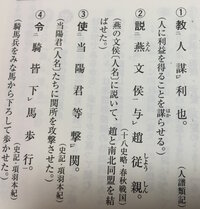 ① 教人謀利也。
（人に利益を得ることを謀らせる。）（人譜類記）
② 説燕文侯与趙従親。
（燕の文侯〔人名〕に説いて、趙と南北同盟を結
ばせた。）（十八史略・春秋戦国）
③ 使当陽君等撃関。
（当陽君〔人名〕たちに関所を攻撃させた。）
（史記・項羽本紀）
④ 令騎皆下馬歩行。
（騎馬兵をみな馬から下ろして歩かせた。）
（史記・項羽本紀）